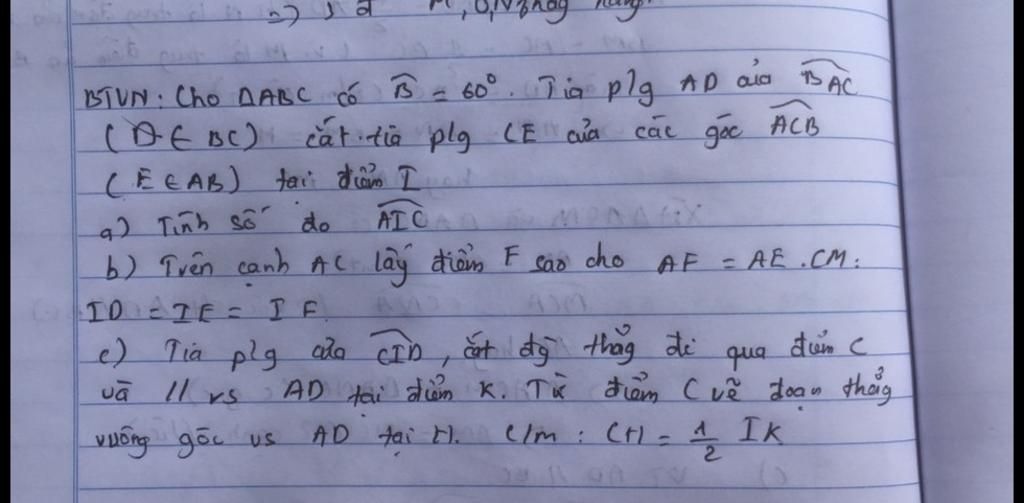 => 3 đ M, O, N thẳg hàng.
BTVN: Cho ΔABC có B̂ = 60°. Tia p/g AD của B͡AC
(D ∈ BC) cắt tia p/g CE của các góc A͡CB
(E ∈ AB) tại điểm I
a) Tính số đo A͡IC
b) Trên cạnh AC lấy điểm F sao cho AF = AE. CM:
ID = IE = IF.
c) Tia p/g của C͡ID, cắt đg thẳg đi qua điểm C
và // vs AD tại điểm K. Từ điểm C vẽ đoạn thẳg
vuông góc vs AD tại H. C/m: CH = 1/2 IK